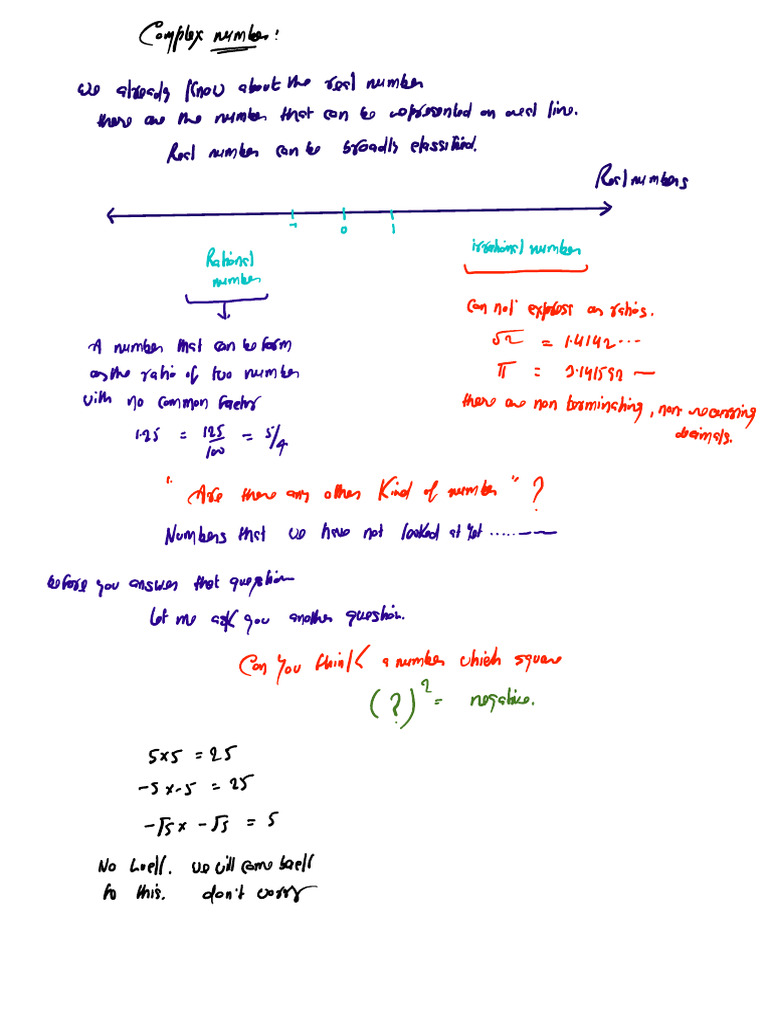 Complex number:
we already know about the real number
there are the number that can be represented on real line.
Real number can be broadly classified.
Real numbers
-1 0 1
Rational
number
irrational number
A number that can be form
as the ratio of two number
with no common factor
1.25 = 125/100 = 5/4
Can not express as ratios.
√2 = 1.4142...
π = 3.141592 —
there are non terminating, non-recurring
decimals.
"Are there any other Kind of number"?
Numbers that we have not looked at yet ......---
before you answer that question
Let me ask you another question.
Can you think a number which square
(?)² = negative.
5×5 = 25
-5 × -5 = 25
-√5 × -√5 = 5
No luck. we will come back
to this. don't worry